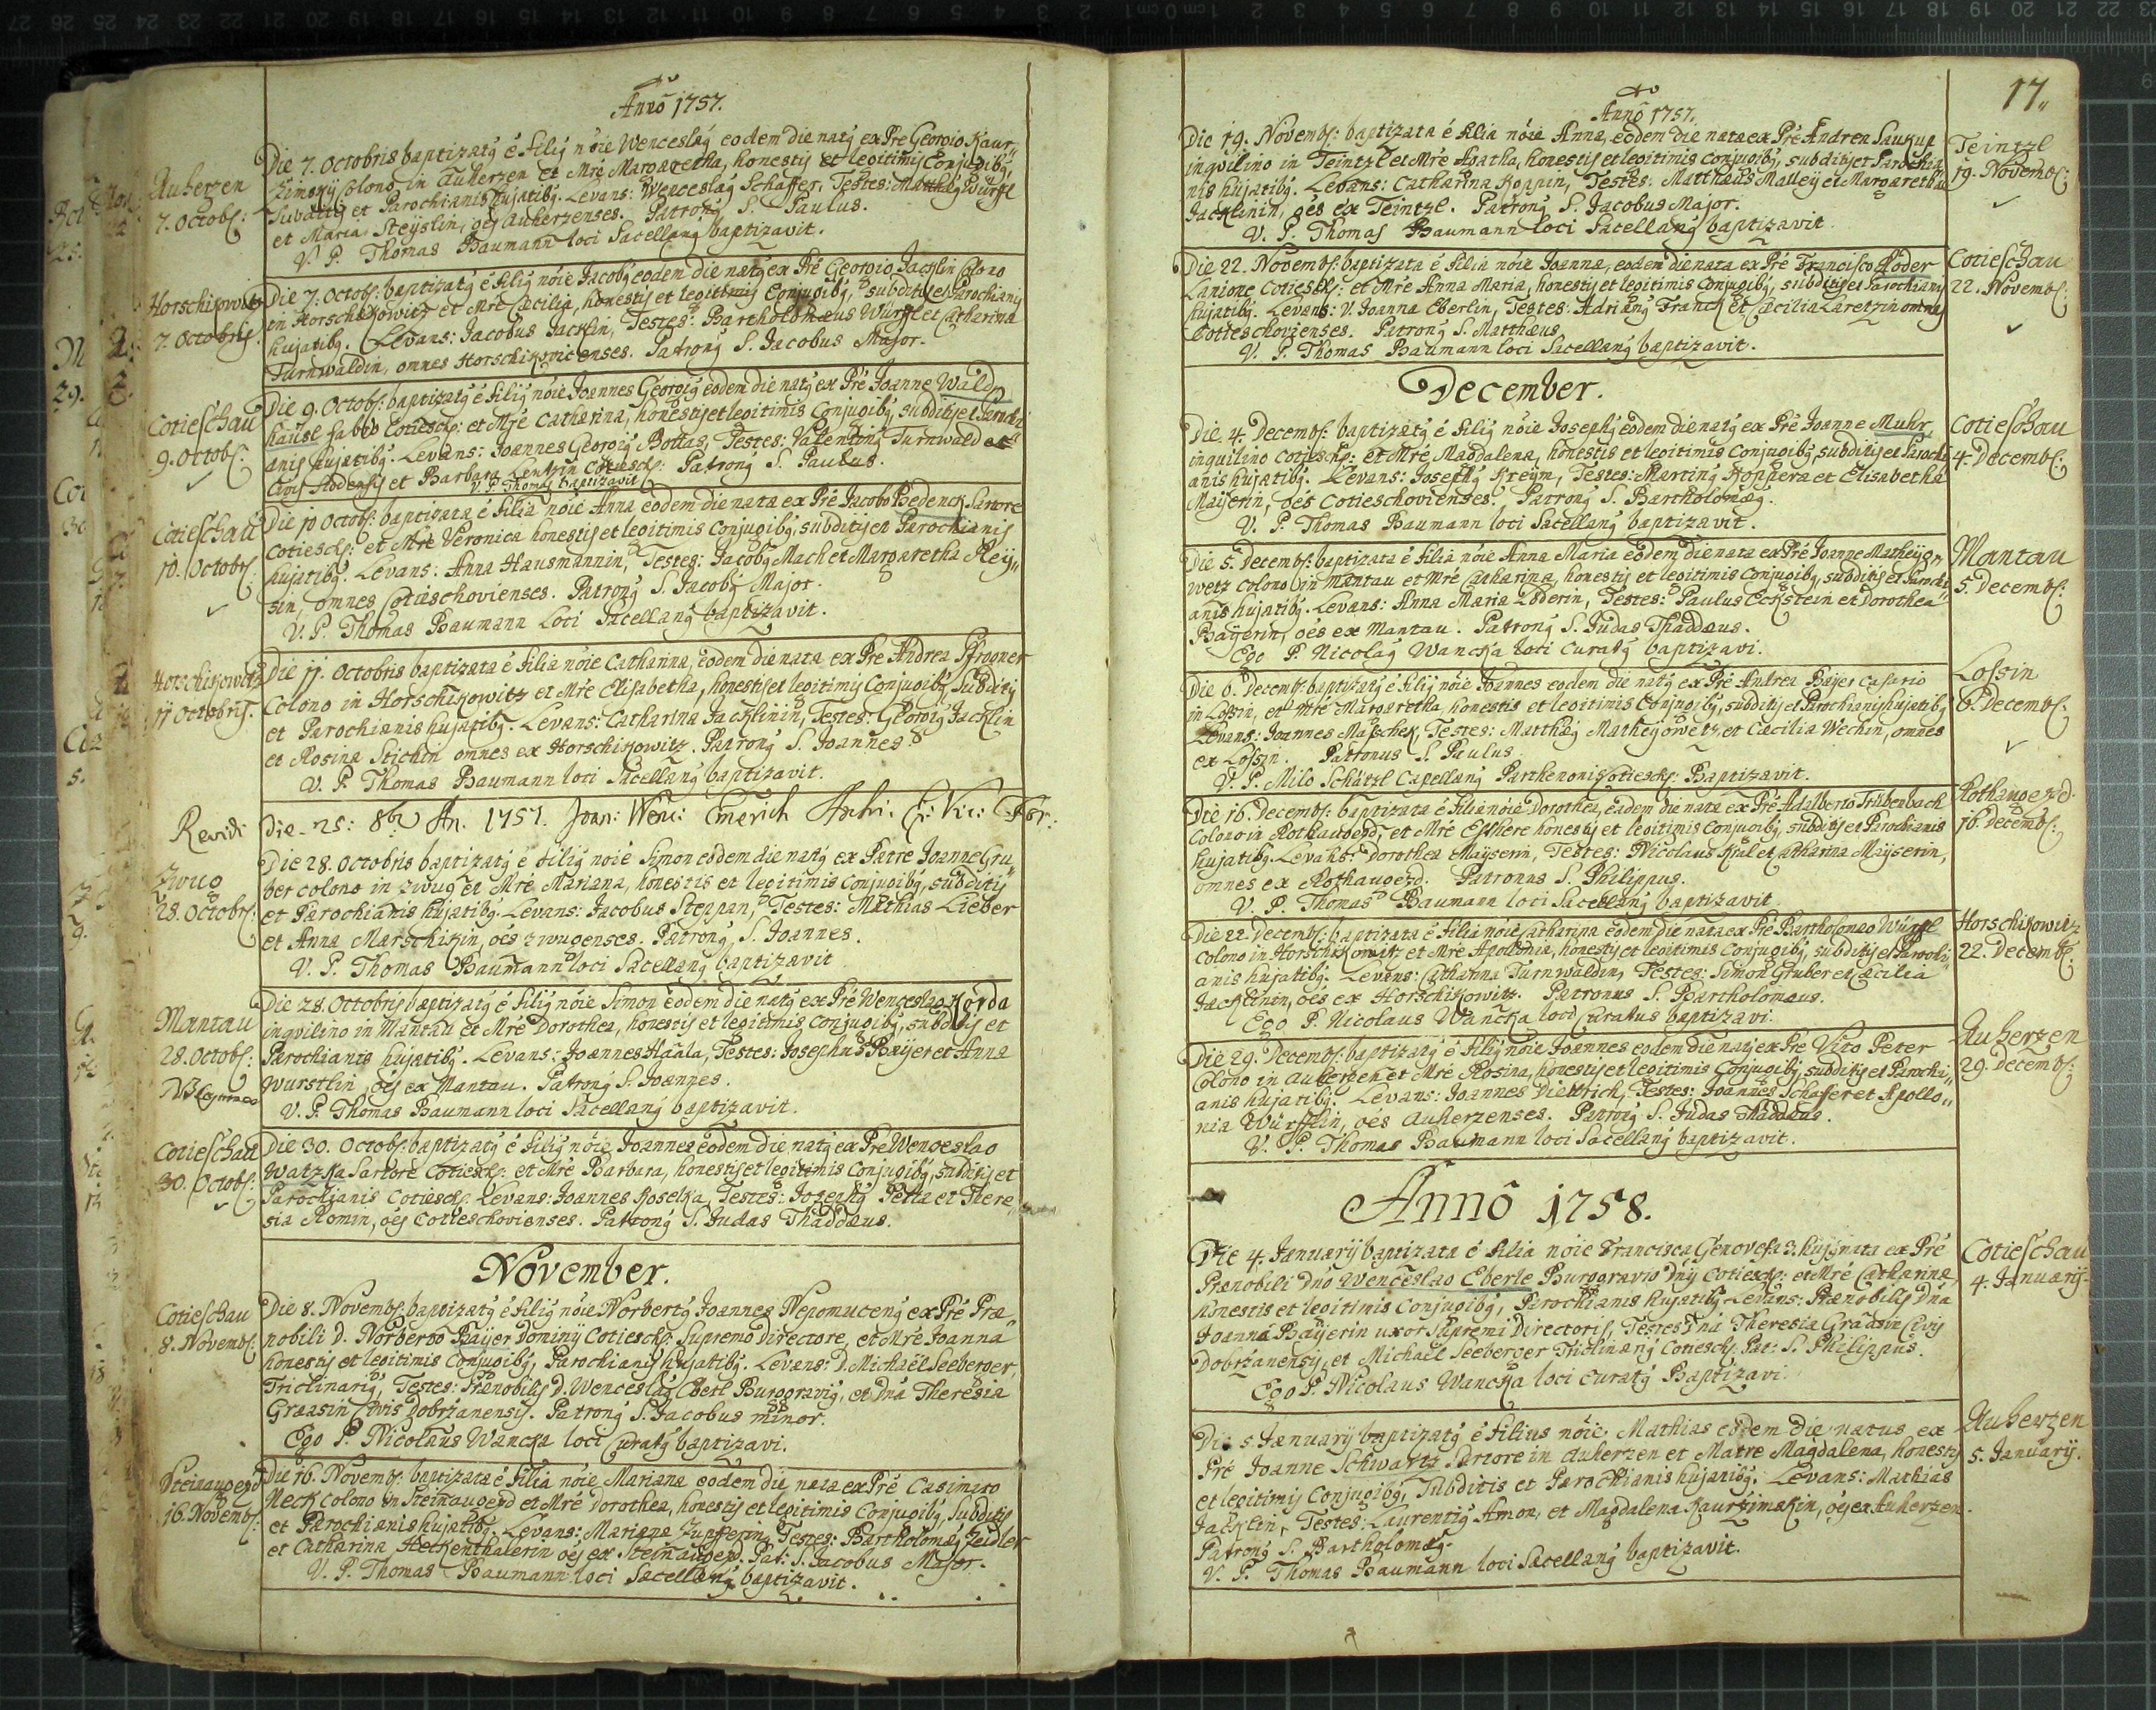 Anno 1757.
Auherzen
7. Octobr:
Die 7. Octobris baptizatq é filiq nóie Wenceslaq eodem die natq ex Pre Georgio Kaur„
zimsky Colono in Auherzen et Mré Margaretha, honestis et legitimis Conjugibq,
Subditis et Parochianis hujatibq. Levans: Wenceslaq Schaffer, Testes: Matthæq Würffl
et Maria Steyslin, oés Auherzenses. Patronq S. Paulus.
V. P. Thomas Baumann loci Sacellanq baptizavit.
Horschikowitz
7. Octobris
Die 7. Octobr: baptizatq é filiq nóie Jacobq eodem die natq ex Pré Georgio Jacklin Colono
in Horschikowitz et Mré Cæcilia, honestis et legitimis Conjugibq, subditis et Parochianis
hujatibq. Levans: Jacobus Jacklin, Testes: Bartholomæus Würffl et Catharina
Turnwaldin, omnes Horschikovicenses. Patronq S. Jacobus Major.
Cotieschau
9. Octobr:
Die 9. Octobr: baptizatq é filiq nóie Joannes Georgiq eodem die natq ex Pré Joanne Wald
hausl fabro Cotiesch: et Mré Catharina, honestis et legitimis Conjugibq, subditis et Parochi
anis hujatibq. Levans: Joannes Georgiq Bottas, Testes: Valentinq Turnwald et
Civis et Barbara Lentzin Cotiesch: Patronq S. Paulus.
V. P. Thomas baptizavit
Cotieschau
10. Octobr:
Die 10 Octobr: baptizata é filia nóie Anna eodem die nata ex Pré Jacobo Bedenck Sartore
Cotiesch: et Mré Veronica honestis et legitimis Conjugibq, subditis et Parochianis
hujatibq. Levans: Anna Hausmannin, Testes: Jacobq Mach et Margaretha Reÿ„
sin, omnes Cotieschovienses. Patronq S. Jacobq Major.
V. P. Thomas Baumann Loci Sacellanq baptizavit.
Horschikowitz
11 Octobris.
Die 11. Octobris baptizata é filia nóie Catharina, eodem die nata ex Pre Andrea Pfrogner
Colono in Horschikowitz et Mré Elisabetha, honestis et legitimis Conjugibq Subditis
et Parochianis hujatibq. Levans: Catharina Jacklinin, Testes: Georgiq Jacklin
et Rosina Stichin omnes ex Horschikowitz. Patronq S. Joannes.
V. P. Thomas Baumann loci Sacellanq baptizavit.
Revidi Die 25: 8br An. 1757. Joan: Wen: Emerich For:
Zwug
28. Octobr:
Die 28. Octobris baptizatq é filiq noié Simon eodem die natq ex Patre Joanne Gru„
ber colono in Zwug et Mré Mariana, honestis et legitimis Conjugibq, subditis
et Parochianis hujatibq. Levans: Jacobus Steppan, Testes: Mathias Lieber
et Anna Marschikin, oés Zwugenses. Patronq, S. Joannes.
V. P. Thomas Baumann loci Sacellanq baptizavit
Mantau
28. Octobr:
Die 28. Octobris baptizatq é filiq nóie Simon eodem die natq ex Pré Wenceslao Korda
inqvilino in Mantau et Mré Dorothea, honestis et legitimis Conjugibq, subditis et
Parochianis hujatibq. Levans: Joannes Haala, Testes: Josephus Baÿer et Anna
Wurstlin oés ex Mantau. Patronq S. Joannes.
V. P. Thomas Baumann loci Sacellanq baptizavit.
Cotieschau
30. Octobr:
Die 30. Octobr: baptizatq é filiq nóie Joannes eodem die natq ex Pre Wenceslao
Watzka Sartore Cotiesch: et Mré Barbara, honestis et legitimis Conjugibq, subditis et
Parochianis Cotiesch: Levans: Joannes Koselka, Testes: Josephq Petta et There„
sia Romin, oés Cotieschovienses. Patronq S. Judas Thaddæus.
November.
Cotieschau
8. Novembr:
Die 8. Novembr: baptizatq é filiq nóie Norbertq Joannes Nepomucenq ex Pré Præ„
nobili D. Norberto Baÿer Dominÿ Cotiesch: Supremo Directore, et Mré Joanna
honestis et legitimis Conjugibq, Parochianis hujatibq. Levans: D. Michaël Seeberger,
Triclinariq, Testes: Prænobilis D. Wenceslaq Eberl Burggraviq, et Dna Theresia
Græasin Civis Dobrzanensis. Patronq S. Jacobus minor.
Ego P. Nicolaus Wancka loci Curatq baptizavi.
Steinaugezd
16. Novembr:
Die 16. Novembr: baptizata é filia nóie Mariana eodem die nata ex Pré Casimiro
Neck colono in Steinaugezd et Mré Dorothea, honestis et legitimis Conjugibq, Subditis
et Parochianis hujatibq. Levans: Mariana Zupfferin, Testes: Bartholomæq Zeidler
et Catharina Heckenthalerin oés ex Steinaugezd. Pat: S. Jacobus Major.
V. P. Thomas Baumann loci Sacellanq baptizavit.
17„
Anno 1757.
Die 19. Novembr: baptizata é filia nóie Anna, eodem die nata ex Pré Andrea Saukup
inqvilino in Teintzl et Mre Agatha, honestis et legitimis Conjugibq, subditis et Parochia
nis hujatibq. Levans: Catharina Koppin, Testes: Matthæus Malleÿ et Margaretha
Jacklinin, oés ex Teintzl. Patronq S. Jacobus Major.
V. P. Thomas Baumann loci Sacellanq baptizavit.
Teintzl
19. Novembr:
Die 22. Novembr: baptizata é filia nóie Joanna, eodem die nata ex Pré Francisco Röder
Lanione Cotiesch: et Mré Anna Maria, honestis et legitimis Conjugibq, subditis et Parochianis
hujatibq. Levans: V. Joanna Eberlin, Testes: Adrianq Franck et Cæcilia Laretzin omnes
Cotieschovienses. Patronq S. Matthæus.
V. P. Thomas Baumann loci Sacellanq baptizavit.
Cotieschau
22. Novembr:
December.
Die 4. Decembr: baptizatq é filiq nóie Josephq eodem die natq ex Pré Joanne Muhr
inquilino Cotiesch: et Mré Magdalena, honestis et legitimis Conjugibq, subditis et Parochi
anis hujatibq. Levans: Josephq Kreÿm, Testes: Martinq Koppera et Elisabetha
Maÿerin, oés Cotieschovienses. Patronq S. Bartholomæq.
V. P. Thomas Baumann loci Sacellanq baptizavit.
Cotieschau
4. Decembr:
Die 5. Decembr: baptizata é filia nóie Anna Maria eodem die nata ex Pré Joanne Matheÿo„
wetz colono in Mantau et Mré Catharina, honestis et legitimis Conjugibq, subditis et Parochi„
anis hujatibq. Levans: Anna Maria Löderin, Testes: Paulus Eckstein et Dorothea
Baÿerin, oés ex Mantau. Patronq S. Judas Thaddæus.
Ego P. Nicolaq Wancka loci Curatq baptizavi.
Mantau
5. Decembr:
Die 6. Decembr: baptizatq é filiq nóie Joannes eodem die natq ex Pré Andrea Baÿer Casario
in Lossin, et Mré Margaretha, honestis et legitimis Conjugibq, subditis et Parochianis hujatibq
Levans: Joannes Maschek, Testes: Matthæq Matheÿowetz, et Cæcilia Wechin, omnes
ex Lossin. Patronus S. Paulus.
V. P. Milo Schätzl Capellanq Parthenonis Cotiesch: Baptizavit.
Lossin
6. Decembr:
Die 16. Decembr: baptizata é filia nóie Dorothea, eadem die nata ex Pré Adalberto Trübenbach
Colono in Rothaugezd, et Mré Esthere honestis et legitimis Conjugibq, subditis et Parochianis
hujatibq. Levans: Dorothea Maÿserin, Testes: Nicolaus Kral et Catharina Maÿserin,
omnes ex Rothaugezd. Patronus S. Philippus.
V. P. Thomas Baumann loci Sacellanq baptizavit.
Rothaugezd.
16. Decembr:
Die 22. Decembr: baptizata é filia nóie Catharina eodem die nata ex Pré Bartholomæo Würffl
colono in Horschikowitz et Mré Apollonia, honestis et legitimis Conjugibq, subditis et Parochi„
anis hujatibq. Levans: Catharina Turnwaldin, Testes: Simon Gruber et Cæcilia
Jacklinin, oés ex Horschikowitz. Patronus S. Bartholomæus.
Ego P. Nicolaus Wancka loci Curatus baptizavi.
Horschikowitz
22. Decembr:
Die 29. Decembr: baptizatq é filiq nóie Joannes eodem die natq ex Pre Vito Peter
Colono in Auherzen et Mré Rosina, honestis et legitimis Conjugibq, subditis et Parochi„
anis hujatibq. Levans: Joannes Diettrich, Testes: Joannes Schaffer et Apollo„
nia Würfflin, oés Auherzenses. Patronq S. Judas Thaddæus.
V. P. Thomas Baumann loci Sacellanq baptizavit.
Auherzen
29. Decembr:
Annô 1758.
Die 4. Januarÿ baptizata é filia nóie Francisca Genovefa 3. hujq nata ex Pré
Prænobili Dno Wenceslao Eberle Burggravio Dnÿ Cotiesch: et Mré Catharina,
honestis et legitimis Conjugibq, Parochianis hujatibq Levans: Prænobilis Dna
Joanna Baÿerin uxor Supremi Directoris, Testes Dna Theresia Graasin Civis
Dobrzanensis, et Michaël Seeberger Triclinarq Cotiesch: Pat: S. Philippus.
Ego P. Nicolaus Wancka loci curatq Baptizavi.
Cotieschau
4. Januarÿ
Die 5. Januarÿ baptizatq é filius nóie Mathias eodem die natus ex
Pré Joanne Schwartz Sartore in Auherzen et Matre Magdalena, honestis
et legitimis Conjugibq, Subditis et Parochianis hujatibq. Levans: Mathias
Jacklin, Testes: Laurentiq Amon, et Magdalena Kaurzimskin, oés ex Auherzen.
Patronq S. Bartholomæq.
V. P. Thomas Baumann loci Sacellanq baptizavit.
Auherzen
5. Januarÿ.